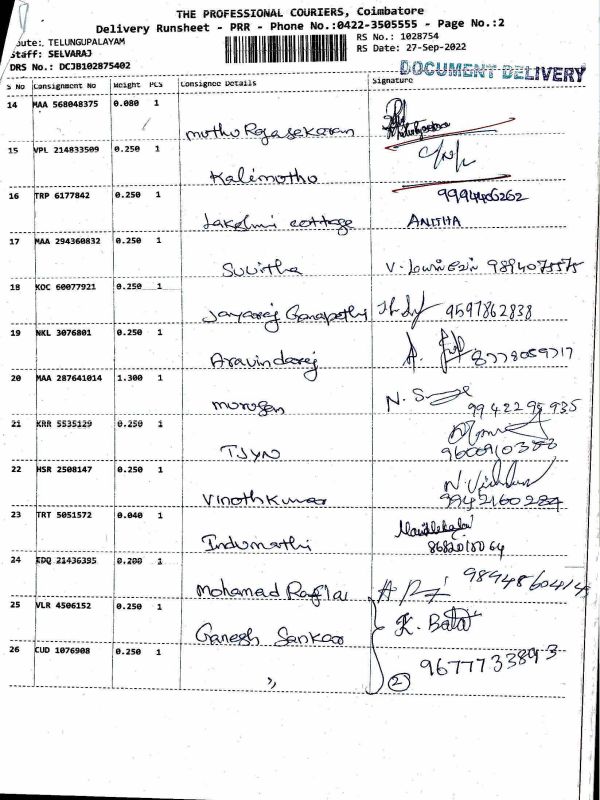 THE PROFESSIONAL COURIERS, Coimbatore
Delivery Runsheet - PRR - Phone No.:0422-3505555 - Page No.:2
oute: TELUNGUPALAYAM RS No.: 1028754
Staff: SELVARAJ RS Date: 27-Sep-2022
DRS No.: DCJB102875402 DOCUMENT DELIVERY
S No Consignment No Weight PCS Consignee Details Signature
14 MAA 568048375 0.080 1
muthu Rajasekaran
15 VPL 214833509 0.250 1
Kalimuthu
16 TRP 6177842 0.250 1 9994406262
Lakshmi cottage ANITHA
17 MAA 294360832 0.250 1
Suvitha V. 9894075575
18 KOC 60077921 0.250 1
Jayaraj Ganapathy 9597862838
19 NKL 3076801 0.250 1
Aravindaraj A. 8778059717
20 MAA 287641014 1.300 1 N.
murugan 9942295935
21 KRR 5535129 0.250 1
TJYN 9600910388
22 HSR 2508147 0.250 1
Vinothkumar 9942160284
23 TRT 5051572 0.040 1
Indumathi 8682018064
24 EDQ 21436395 0.200 1 9894860414
Mohamad
25 VLR 4506152 0.250 1 K.
Ganesh Sankar
26 CUD 1076908 0.250 1 9677733893
” 2